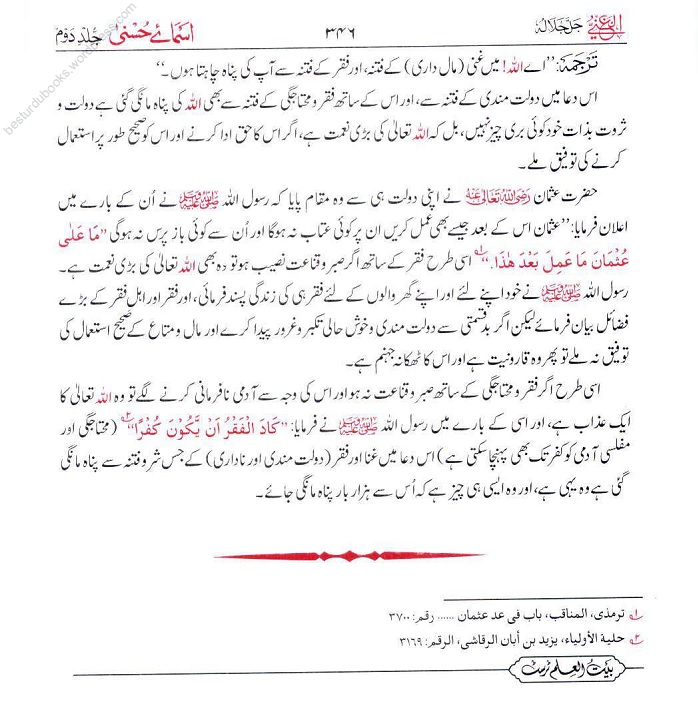 اسمائے حسنیٰ جلد دوم
۳۴۶
الغنی جل جلالہ
besturdubooks.wordpress.com
ترجمہ: ’’اے اللہ! میں غنی (مال داری) کے فتنہ، اور فقر کے فتنہ سے آپ کی پناہ چاہتا ہوں۔‘‘
اس دعا میں دولت مندی کے فتنہ سے، اور اس کے ساتھ فقر و محتاجگی کے فتنہ سے بھی اللہ کی پناہ مانگی گئی ہے دولت و
ثروت بذات خود کوئی بری چیز نہیں، بل کہ اللہ تعالیٰ کی بڑی نعمت ہے، اگر اس کا حق ادا کرنے اور اس کو صحیح طور پر استعمال
کرنے کی توفیق ملے۔
حضرت عثمان رَضِیَ اللہُ تَعَالٰی عَنْہُ نے اپنی دولت ہی سے وہ مقام پایا کہ رسول اللہ ﷺ نے اُن کے بارے میں
اعلان فرمایا: ’’عثمان اس کے بعد جیسے بھی عمل کریں ان پر کوئی عتاب نہ ہوگا اور اُن سے کوئی باز پرس نہ ہوگی ’’مَا عَلٰی
عُثْمَانَ مَا عَمِلَ بَعْدَ هٰذَا.‘‘ ۱؎ اسی طرح فقر کے ساتھ اگر صبر و قناعت نصیب ہو تو وہ بھی اللہ تعالیٰ کی بڑی نعمت ہے۔
رسول اللہ ﷺ نے خود اپنے لئے اور اپنے گھر والوں کے لئے فقر ہی کی زندگی پسند فرمائی، اور فقر اور اہل فقر کے بڑے
فضائل بیان فرمائے لیکن اگر بدقسمتی سے دولت مندی و خوش حالی تکبر و غرور پیدا کرے اور مال و متاع کے صحیح استعمال کی
توفیق نہ ملے تو پھر وہ قارونیت ہے اور اس کا ٹھکانہ جہنم ہے۔
اسی طرح اگر فقر و محتاجگی کے ساتھ صبر و قناعت نہ ہو اور اس کی وجہ سے آدمی نافرمانی کرنے لگے تو وہ اللہ تعالیٰ کا
ایک عذاب ہے، اور اسی کے بارے میں رسول اللہ ﷺ نے فرمایا: ’’کَادَ الْفَقْرُ اَنْ یَّکُوْنَ کُفْرًا‘‘ ۲؎ (محتاجگی اور
مفلسی آدمی کو کفر تک بھی پہنچا سکتی ہے) اس دعا میں غنا اور فقر (دولت مندی اور ناداری) کے جس شر و فتنہ سے پناہ مانگی
گئی ہے وہ یہی ہے، اور وہ ایسی ہی چیز ہے کہ اُس سے ہزار بار پناہ مانگی جائے۔
۱؎ ترمذی، المناقب، باب فی عد عثمان ...... رقم: ۳۷۰۰
۲؎ حلیۃ الأولیاء، یزید بن أبان الرقاشی، الرقم: ۳۱۶۹
بیت العلم ٹرسٹ